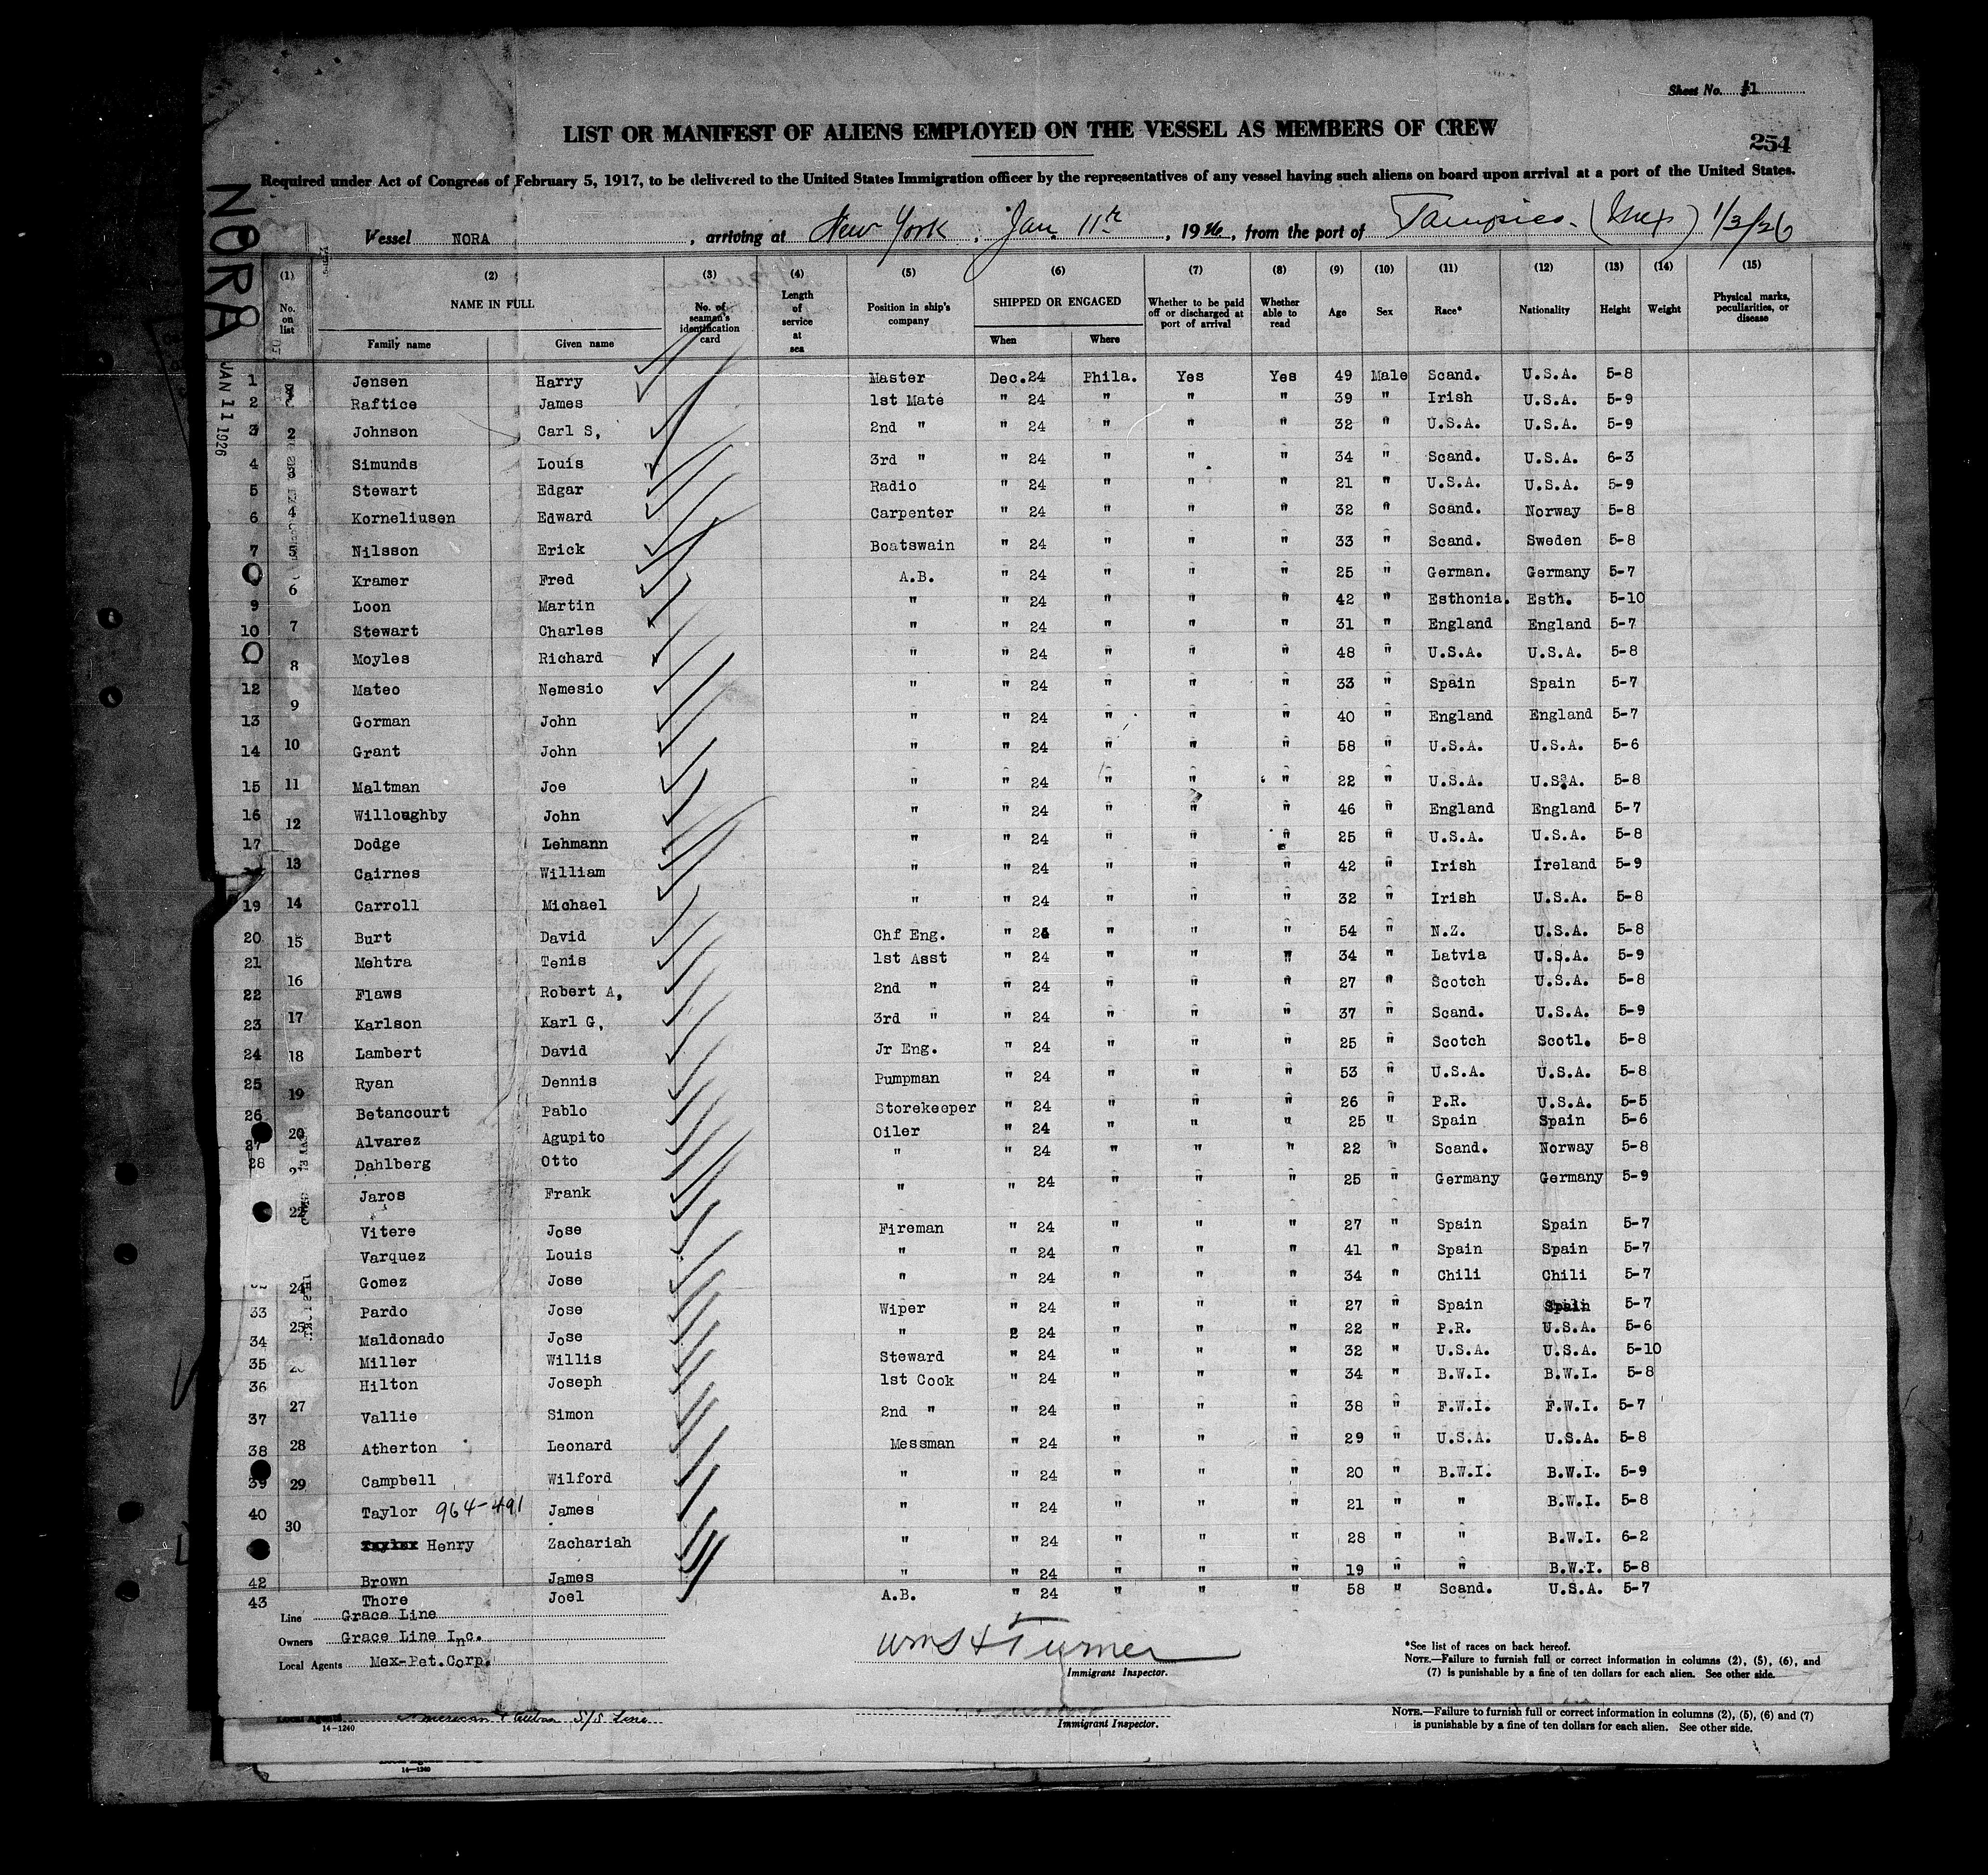 Sheet No. 1
LIST OR MANIFEST OF ALIENS EMPLOYED ON THE VESSEL AS MEMBERS OF CREW
254
Required under Act of Congress of February 5, 1917, to be delivered to the United States Immigration officer by the representatives of any vessel having such aliens on board upon arrival at a port of the United States.
NORA
JAN 11 1926
Vessel NORA, arriving at New York, Jan. 11th, 1926, from the port of Tampico. (Mex) 1/3/26
(1) (2) (3) (4) (5) (6) (7) (8) (9) (10) (11) (12) (13) (14) (15)
No. on list NAME IN FULL No. of seaman's identification card Length of service at sea Position in ship's company SHIPPED OR ENGAGED Whether to be paid off or discharged at port of arrival Whether able to read Age Sex Race* Nationality Height Weight Physical marks, peculiarities, or disease
Family name Given name When Where
1 Jensen Harry Master Dec. 24 Phila. Yes Yes 49 Male Scand. U.S.A. 5-8
2 Raftice James 1st Mate " 24 " " " 39 " Irish U.S.A. 5-9
3 2 Johnson Carl S, 2nd " " 24 " " " 32 " U.S.A. U.S.A. 5-9
4 Simunds Louis 3rd " " 24 " " " 34 " Scand. U.S.A. 6-3
5 Stewart Edgar Radio " 24 " " " 21 " U.S.A. U.S.A. 5-9
6 4 Korneliusen Edward Carpenter " 24 " " " 32 " Scand. Norway 5-8
7 5 Nilsson Erick Boatswain " 24 " " " 33 " Scand. Sweden 5-8
6 Kramer Fred A.B. " 24 " " " 25 " German. Germany 5-7
9 Loon Martin " " 24 " " " 42 " Esthonia. Esth. 5-10
10 7 Stewart Charles " " 24 " " " 31 " England England 5-7
8 Moyles Richard " " 24 " " " 48 " U.S.A. U.S.A. 5-8
12 9 Mateo Nemesio " " 24 " " " 33 " Spain Spain 5-7
13 Gorman John " " 24 " " " 40 " England England 5-7
14 10 Grant John " " 24 " " " 58 " U.S.A. U.S.A. 5-6
15 11 Maltman Joe " " 24 " " " 22 " U.S.A. U.S.A. 5-8
16 12 Willoughby John " " 24 " " " 46 " England England 5-7
17 Dodge Lehmann " " 24 " " " 25 " U.S.A. U.S.A. 5-8
13 Cairnes William " " 24 " " " 42 " Irish Ireland 5-9
19 14 Carroll Michael " " 24 " " " 32 " Irish U.S.A. 5-8
20 15 Burt David Chf Eng. " 24 " " " 54 " N.Z. U.S.A. 5-8
21 Mehtra Tenis 1st Asst " 24 " " " 34 " Latvia U.S.A. 5-9
22 16 Flaws Robert A, 2nd " " 24 " " " 27 " Scotch U.S.A. 5-8
23 17 Karlson Karl G, 3rd " " 24 " " " 37 " Scand. U.S.A. 5-9
24 18 Lambert David Jr Eng. " 24 " " " 25 " Scotch Scotl. 5-8
25 19 Ryan Dennis Pumpman " 24 " " " 53 " U.S.A. U.S.A. 5-8
26 Betancourt Pablo Storekeeper " 24 " " " 26 " P.R. U.S.A. 5-5
27 20 Alvarez Agupito Oiler " 24 " " " 25 " Spain Spain 5-6
28 Dahlberg Otto " " 24 " " " 22 " Scand. Norway 5-8
22 Jaros Frank " " 24 " " " 25 " Germany Germany 5-9
Vitere Jose Fireman " 24 " " " 27 " Spain Spain 5-7
Varquez Louis " " 24 " " " 41 " Spain Spain 5-7
24 Gomez Jose " " 24 " " " 34 " Chili Chili 5-7
33 25 Pardo Jose Wiper " 24 " " " 27 " Spain Spain 5-7
34 Maldonado Jose " " 24 " " " 22 " P.R. U.S.A. 5-6
35 Miller Willis Steward " 24 " " " 32 " U.S.A. U.S.A. 5-10
36 Hilton Joseph 1st Cook " 24 " " " 34 " B.W.I. B.W.I. 5-8
37 27 Vallie Simon 2nd " " 24 " " " 38 " F.W.I. F.W.I. 5-7
38 28 Atherton Leonard Messman " 24 " " " 29 " U.S.A. U.S.A. 5-8
39 29 Campbell Wilford " " 24 " " " 20 " B.W.I. B.W.I. 5-9
40 30 Taylor 964-491 James " " 24 " " " 21 " " B.W.I. 5-8
Henry Zachariah " " 24 " " " 28 " " B.W.I. 6-2
42 Brown James " " 24 " " " 19 " " B.W.I. 5-8
43 Thore Joel A.B. " 24 " " " 58 " Scand. U.S.A. 5-7
Line Grace Line
Owners Grace Line Inc.
Local Agents Mex-Pet.Corp.
Wm S H Turner
Immigrant Inspector.
*See list of races on back hereof.
NOTE.—Failure to furnish full or correct information in columns (2), (5), (6), and
(7) is punishable by a fine of ten dollars for each alien. See other side.
Local Agents American & Cuban S/S Line
14-1240
Immigrant Inspector.
NOTE.—Failure to furnish full or correct information in columns (2), (5), (6) and (7)
is punishable by a fine of ten dollars for each alien. See other side.
14-1240